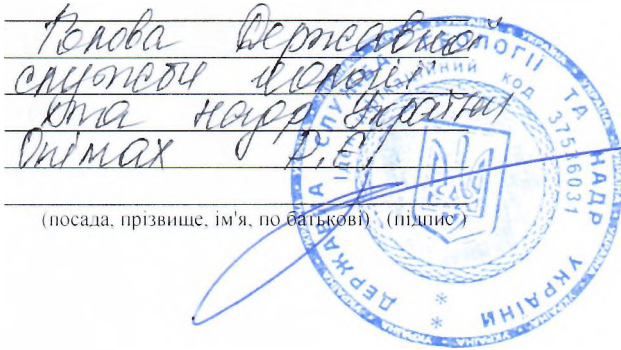 Голова Державної
служби геології
та надр України
Опімах Р.Є.
(посада, прізвище, ім'я, по батькові) (підпис)
ДЕРЖАВНА СЛУЖБА ГЕОЛОГІЇ ТА НАДР УКРАЇНИ
УКРАЇНА
код 37536031